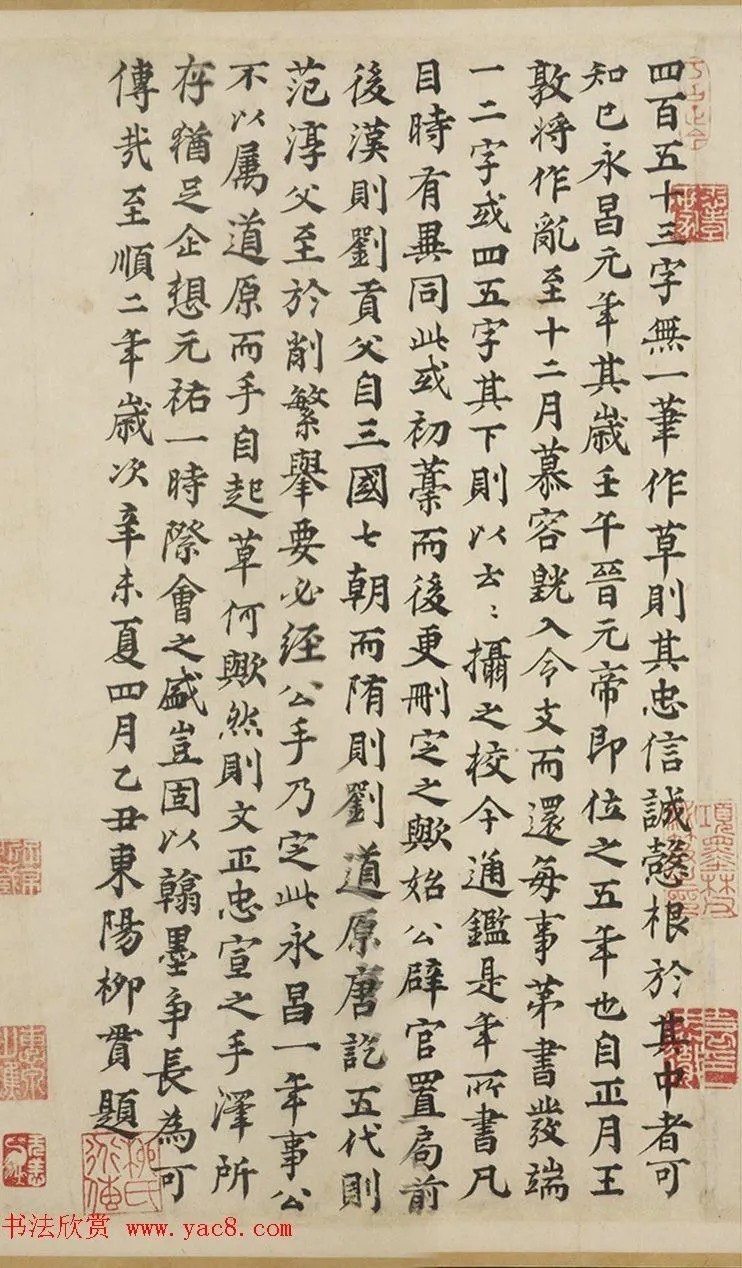 四百五十三字無一筆作草則其忠信誠慤根於其中者可
知已永昌元年其歲壬午晉元帝即位之五年也自正月王
敦將作亂至十二月慕容皝入令支而還每事第書發端
一二字或四五字其下則以云〻攝之校今通鑑是年所書凡
目時有異同此或初藁而後更刪定之歟始公辟官置局前
後漢則劉貢父自三國七朝而隋則劉道原唐訖五代則
范淳父至於削繁舉要必經公手乃定此永昌一年事公
不以屬道原而手自起草何歟然則文正忠宣之手澤所
存猶足企想元祐一時際會之盛豈固以翰墨爭長為可
傳哉至順二年歲次辛未夏四月乙丑東陽柳貫題
柳氏
书法欣赏 www.yac8.com